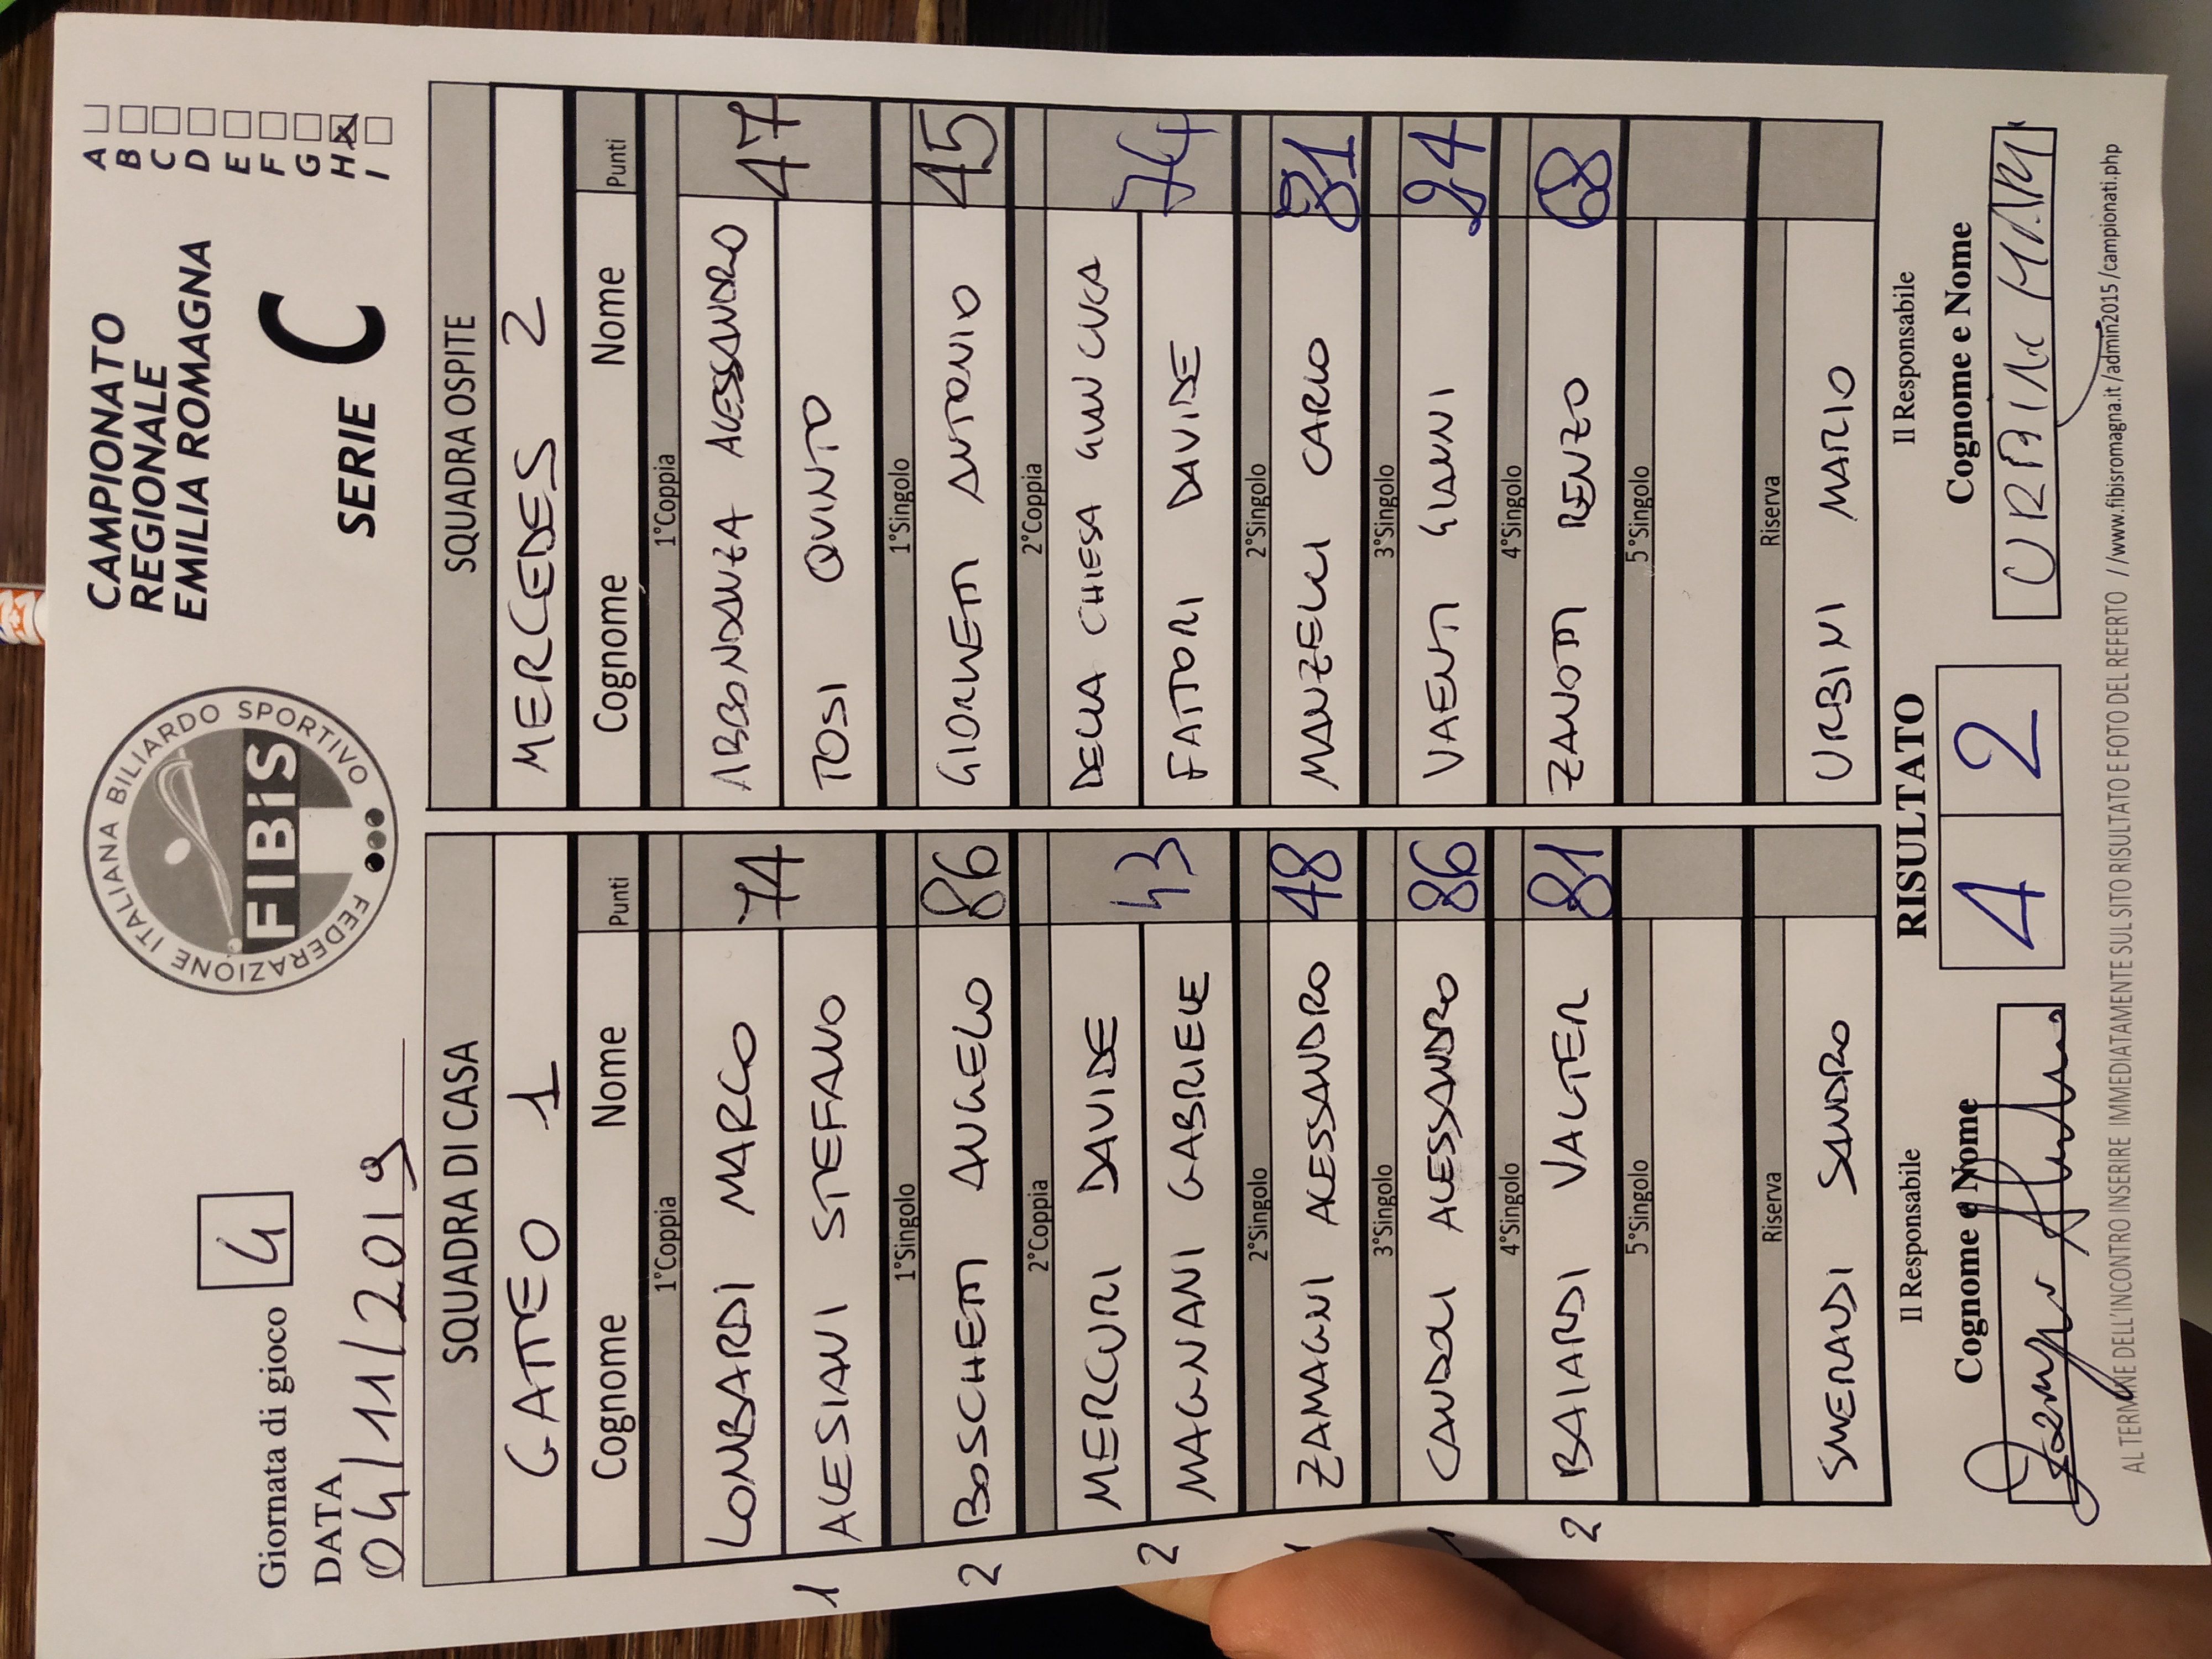 Giornata di gioco 4
DATA
04/11/2019
FEDERAZIONE ITALIANA BILIARDO SPORTIVO
FIBiS
CAMPIONATO
REGIONALE
EMILIA ROMAGNA
SERIE C
A
B
C
D
E
F
G
H X
I
SQUADRA DI CASA
GATTEO 1
Cognome Nome Punti
1°Coppia
LOMBARDI MARCO
74
ALESIANI STEFANO
1
1°Singolo
BOSCHETTI ANGELO 86
2
2°Coppia
MERCURI DAVIDE
43
MAGNANI GABRIELE
2
2°Singolo
ZAMAGNI ALESSANDRO 48
3°Singolo
CANDOLI ALESSANDRO 86
1
4°Singolo
BAIARDI VALTER 81
2
5°Singolo
Riserva
SMERANDI SANDRO
SQUADRA OSPITE
MERCEDES 2
Cognome Nome Punti
1°Coppia
ABBONDANZA ALESSANDRO
47
TOSI QUINTO
1°Singolo
GIORNETTI ANTONIO 45
2°Coppia
DELLA CHIESA GIAN LUCA
74
FATTORI DAVIDE
2°Singolo
MANZELLI CARLO 81
3°Singolo
VAENTI GIANNI 24
4°Singolo
ZANOTTI RENZO 68
5°Singolo
Riserva
URBINI MARIO
Il Responsabile
Cognome e Nome
RISULTATO
4 2
Il Responsabile
Cognome e Nome
AL TERMINE DELL'INCONTRO INSERIRE IMMEDIATAMENTE SUL SITO RISULTATO E FOTO DEL REFERTO //www.fibisromagna.it /admin2015 /campionati.php